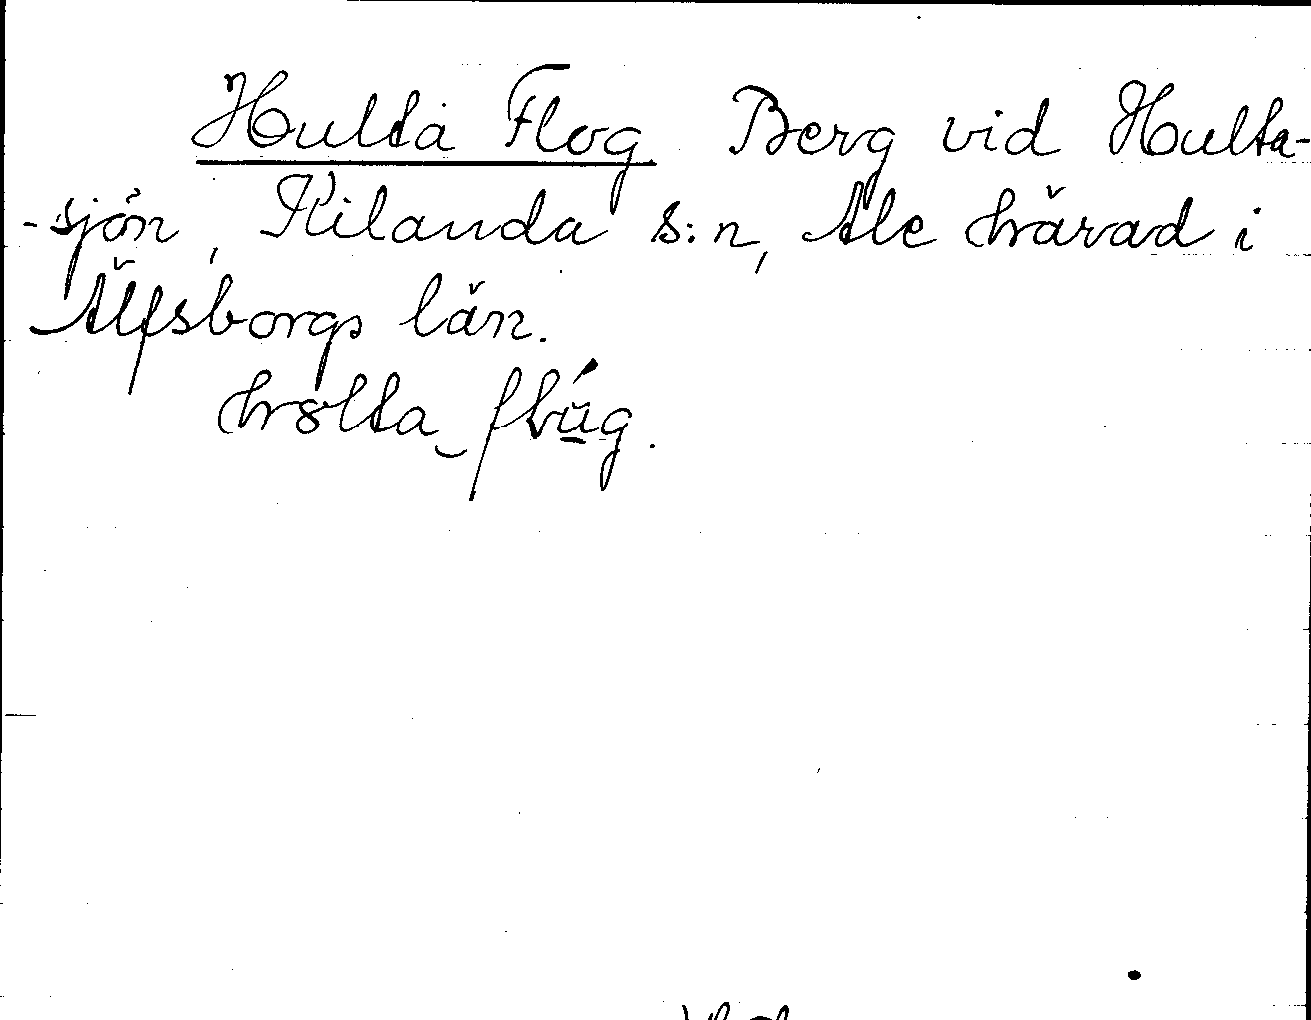 Hulta Flog Berg vid Hulta-
-sjön, Kilanda s:n, Ale härad i
Älfsborgs län.